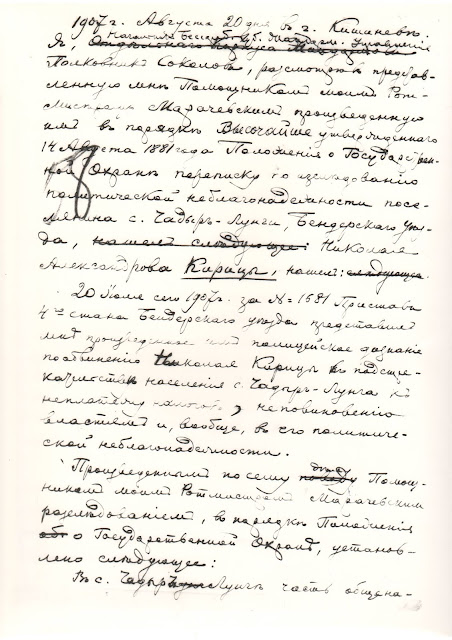 1907 г. Августа 20 дня в г. Кишиневѣ.
Начальник Бессараб. Губ. Жандарм. Управления
Я, Отдѣльного Корпуса Жандармов
Полковник Соколов, рассмотрѣв представ-
ленную мнѣ Помощником моим Рот-
мистром Марачевским произведенную
им в порядкѣ Высочайше утвержденного
14 Августа 1881 года Положения о Государствен-
ной Охранѣ переписку по изслѣдованию
политической неблагонадежности посе-
лянина с. Чадыр-Лунги, Бендерского уѣз-
да, нашел слѣдующее: Николая
Александрова Кирицы, нашел: слѣдующее
20 Июля сего 1907 г. за № 1581 Пристав
4го стана Бендерского уѣзда представил
мнѣ произведенное им полицейское дознание
по обвинению Николая Кирицы в подстре-
кательствѣ населения с. Чадыр-Лунга к
неплатежу налогов, неповиновению
властям и, вообще, в его политиче-
ской неблагонадежности.
Произведенным по сему дѣлу Помощ-
ником моим Ротмистром Марачевским
разслѣдованием, в порядкѣ Положения
об о Государственной Охранѣ, установ-
лено слѣдующее:
В с. Чадыр-Лунгѣ часть общена-